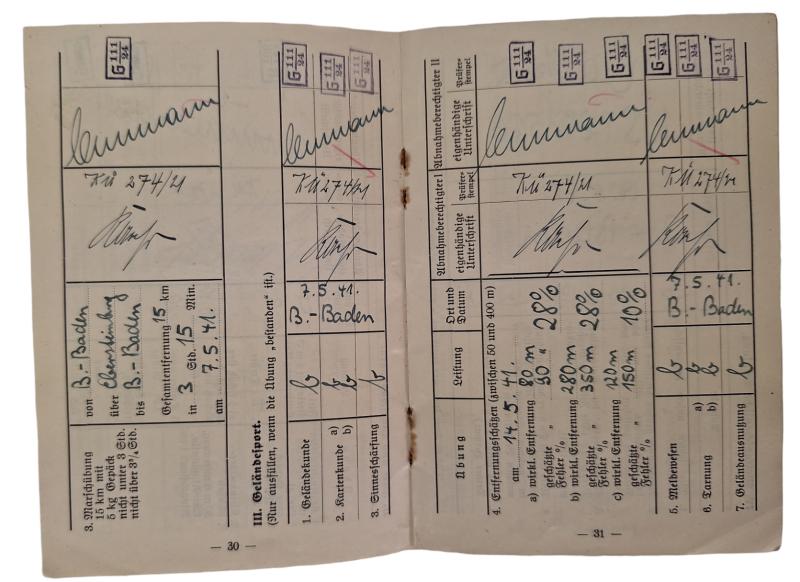 3. Marschübung
15 km mit
5 kg Gepäck
nicht unter 3 Std.
nicht über 3³/₄ Std.
von B.-Baden
über Ebersteinburg
bis B.-Baden
Gesamtentfernung 15 km
in 3 Std. 15 Min.
am 7.5.41.
KÜ 274/21
G 111/24
III. Geländesport.
(Nur ausfüllen, wenn die Übung „bestanden“ ist.)
1. Geländekunde b
2. Kartenkunde a) b
b) b
3. Sinnesschärfung b
7.5.41.
B.-Baden
KÜ 274/21
G 111/24
G 111/24
G 111/24
— 30 —
Übung
Leistung
Ort und Datum
Abnahmeberechtigter I
eigenhändige Unterschrift
Prüfer-stempel
Abnahmeberechtigter II
eigenhändige Unterschrift
Prüfer-stempel
4. Entfernungsschätzen (zwischen 50 und 400 m)
am 14.5.41.
a) wirkl. Entfernung 80 m
geschätzte „ 90 „
Fehler % 28%
b) wirkl. Entfernung 280 m
geschätzte „ 350 m
Fehler % 28%
c) wirkl. Entfernung 120 m
geschätzte „ 150 m
Fehler % 10%
KÜ 274/21
G 111/24
G 111/24
G 111/24
5. Meldewesen b
6. Tarnung a) b
b) b
7. Geländeausnutzung b
7.5.41.
B.-Baden
KÜ 274/21
G 111/24
G 111/24
G 111/24
— 31 —